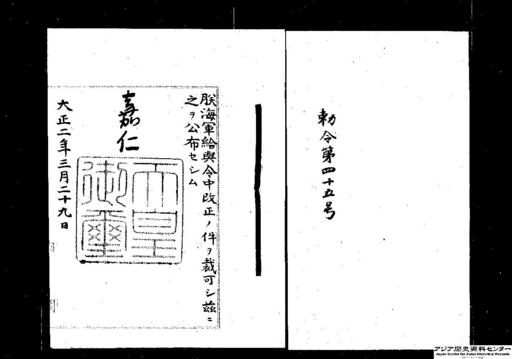 勅令第四十五号
朕海軍給與令中改正ノ件ヲ裁可シ茲ニ
之ヲ公布セシム
嘉仁
天皇
御璽
大正二年三月二十九日
アジア歴史資料センター
Japan Center for Asian Historical Records